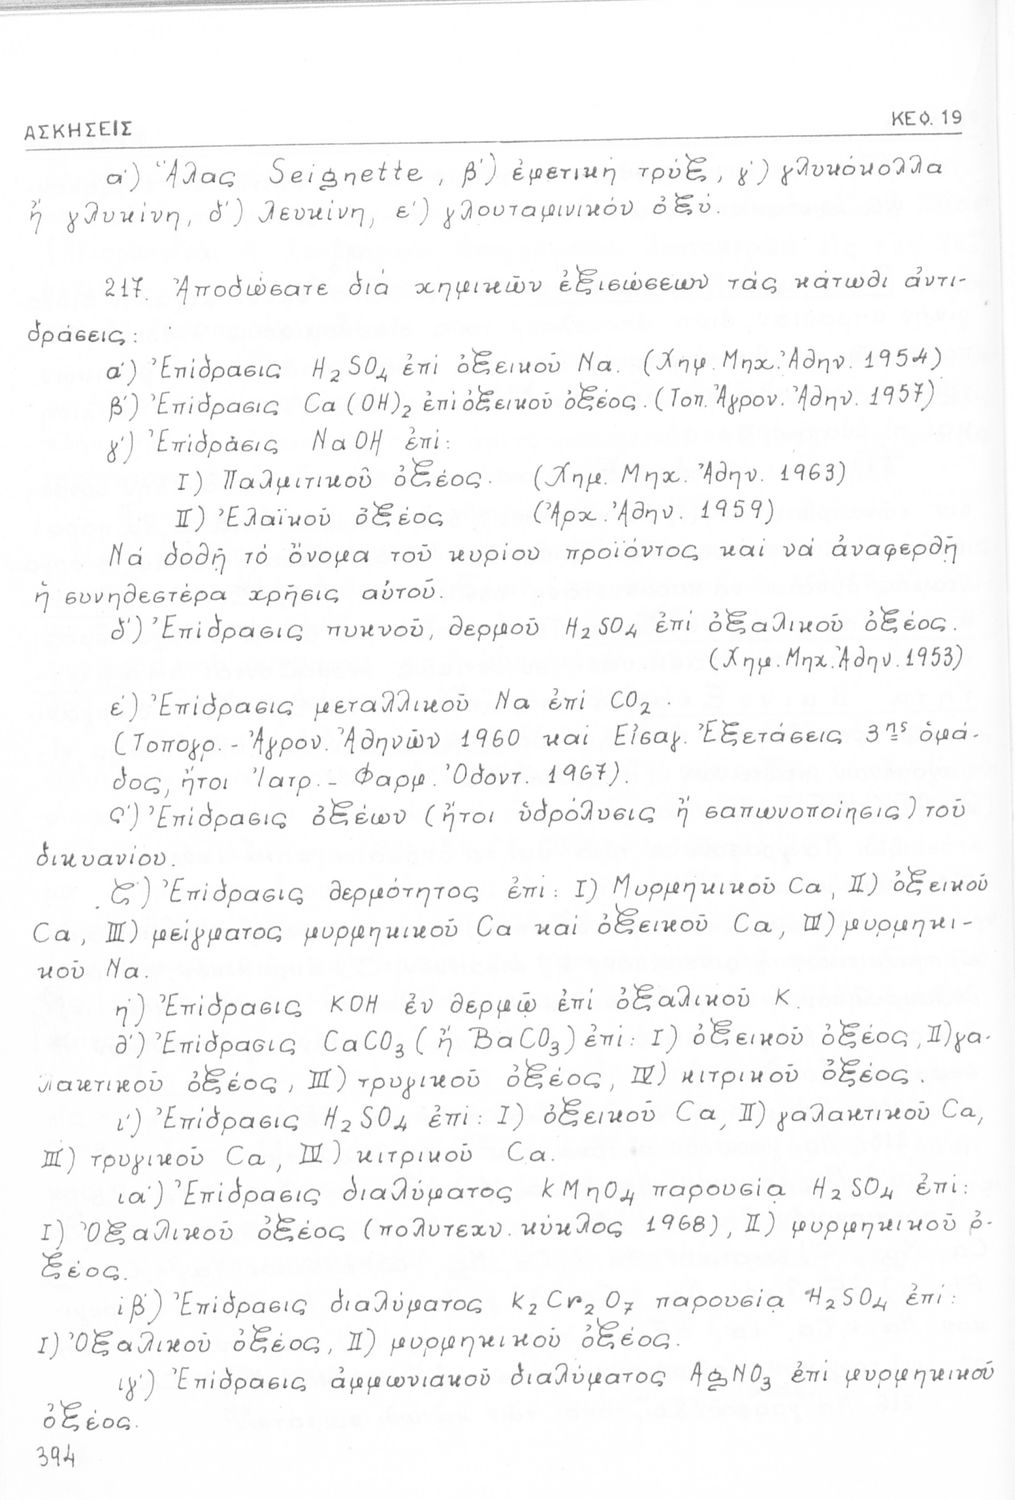 ΑΣΚΗΣΕΙΣ
ΚΕΦ. 19
α΄) Ἅλας Seignette, β΄) ἐμετική τρύξ, γ΄) γλυκόκολλα
ἤ γλυκίνη, δ΄) λευκίνη, ε΄) γλουταμινικόν ὀξύ.
217. Ἀποδώσατε διά χημικῶν ἐξισώσεων τάς κάτωθι ἀντι-
δράσεις:
α΄) Ἐπίδρασις H₂SO₄ ἐπί ὀξεικοῦ Na. (Χημ. Μηχ. Ἀθην. 1954)
β΄) Ἐπίδρασις Ca(OH)₂ ἐπί ὀξεικοῦ ὀξέος. (Τοπ. Ἀγρον. Ἀθην. 1957)
γ΄) Ἐπίδρασις NaOH ἐπί:
I) Παλμιτικοῦ ὀξέος. (Χημ. Μηχ. Ἀθην. 1963)
II) Ἐλαϊκοῦ ὀξέος (Ἀρχ. Ἀθην. 1959)
Νά δοθῇ τό ὄνομα τοῦ κυρίου προϊόντος καί νά ἀναφερθῇ
ἡ συνηθεστέρα χρῆσις αὐτοῦ.
δ΄) Ἐπίδρασις πυκνοῦ, θερμοῦ H₂SO₄ ἐπί ὀξαλικοῦ ὀξέος.
(Χημ. Μηχ. Ἀθην. 1953)
έ) Ἐπίδρασις μεταλλικοῦ Na ἐπί CO₂.
(Τοπογρ. - Ἀγρον. Ἀθηνῶν 1960 καί Εἰσαγ. Ἐξετάσεις 3ης ὁμά-
δος, ἤτοι Ἰατρ. - Φαρμ. Ὀδοντ. 1967).
ς΄) Ἐπίδρασις ὀξέων (ἤτοι ὑδρόλυσις ἤ σαπωνοποίησις) τοῦ
δικυανίου.
ζ΄) Ἐπίδρασις θερμότητος ἐπί: I) Μυρμηκικοῦ Ca, II) ὀξεικοῦ
Ca, III) μείγματος μυρμηκικοῦ Ca καί ὀξεικοῦ Ca, IV) μυρμηκι-
κοῦ Na.
η΄) Ἐπίδρασις KOH ἐν θερμῷ ἐπί ὀξαλικοῦ K.
θ΄) Ἐπίδρασις CaCO₃ (ἤ BaCO₃) ἐπί: I) ὀξεικοῦ ὀξέος, II) γα-
λακτικοῦ ὀξέος, III) τρυγικοῦ ὀξέος, IV) κιτρικοῦ ὀξέος.
ι΄) Ἐπίδρασις H₂SO₄ ἐπί: I) ὀξεικοῦ Ca, II) γαλακτικοῦ Ca,
III) τρυγικοῦ Ca, IV) κιτρικοῦ Ca.
ια΄) Ἐπίδρασις διαλύματος KMnO₄ παρουσίᾳ H₂SO₄ ἐπί:
I) Ὀξαλικοῦ ὀξέος (πολυτεχν. κύκλος 1968), II) μυρμηκικοῦ ὀ-
ξέος.
ιβ΄) Ἐπίδρασις διαλύματος K₂Cr₂O₇ παρουσίᾳ H₂SO₄ ἐπί:
I) Ὀξαλικοῦ ὀξέος, II) μυρμηκικοῦ ὀξέος.
ιγ΄) Ἐπίδρασις ἀμμωνιακοῦ διαλύματος AgNO₃ ἐπί μυρμηκικοῦ
ὀξέος.
394